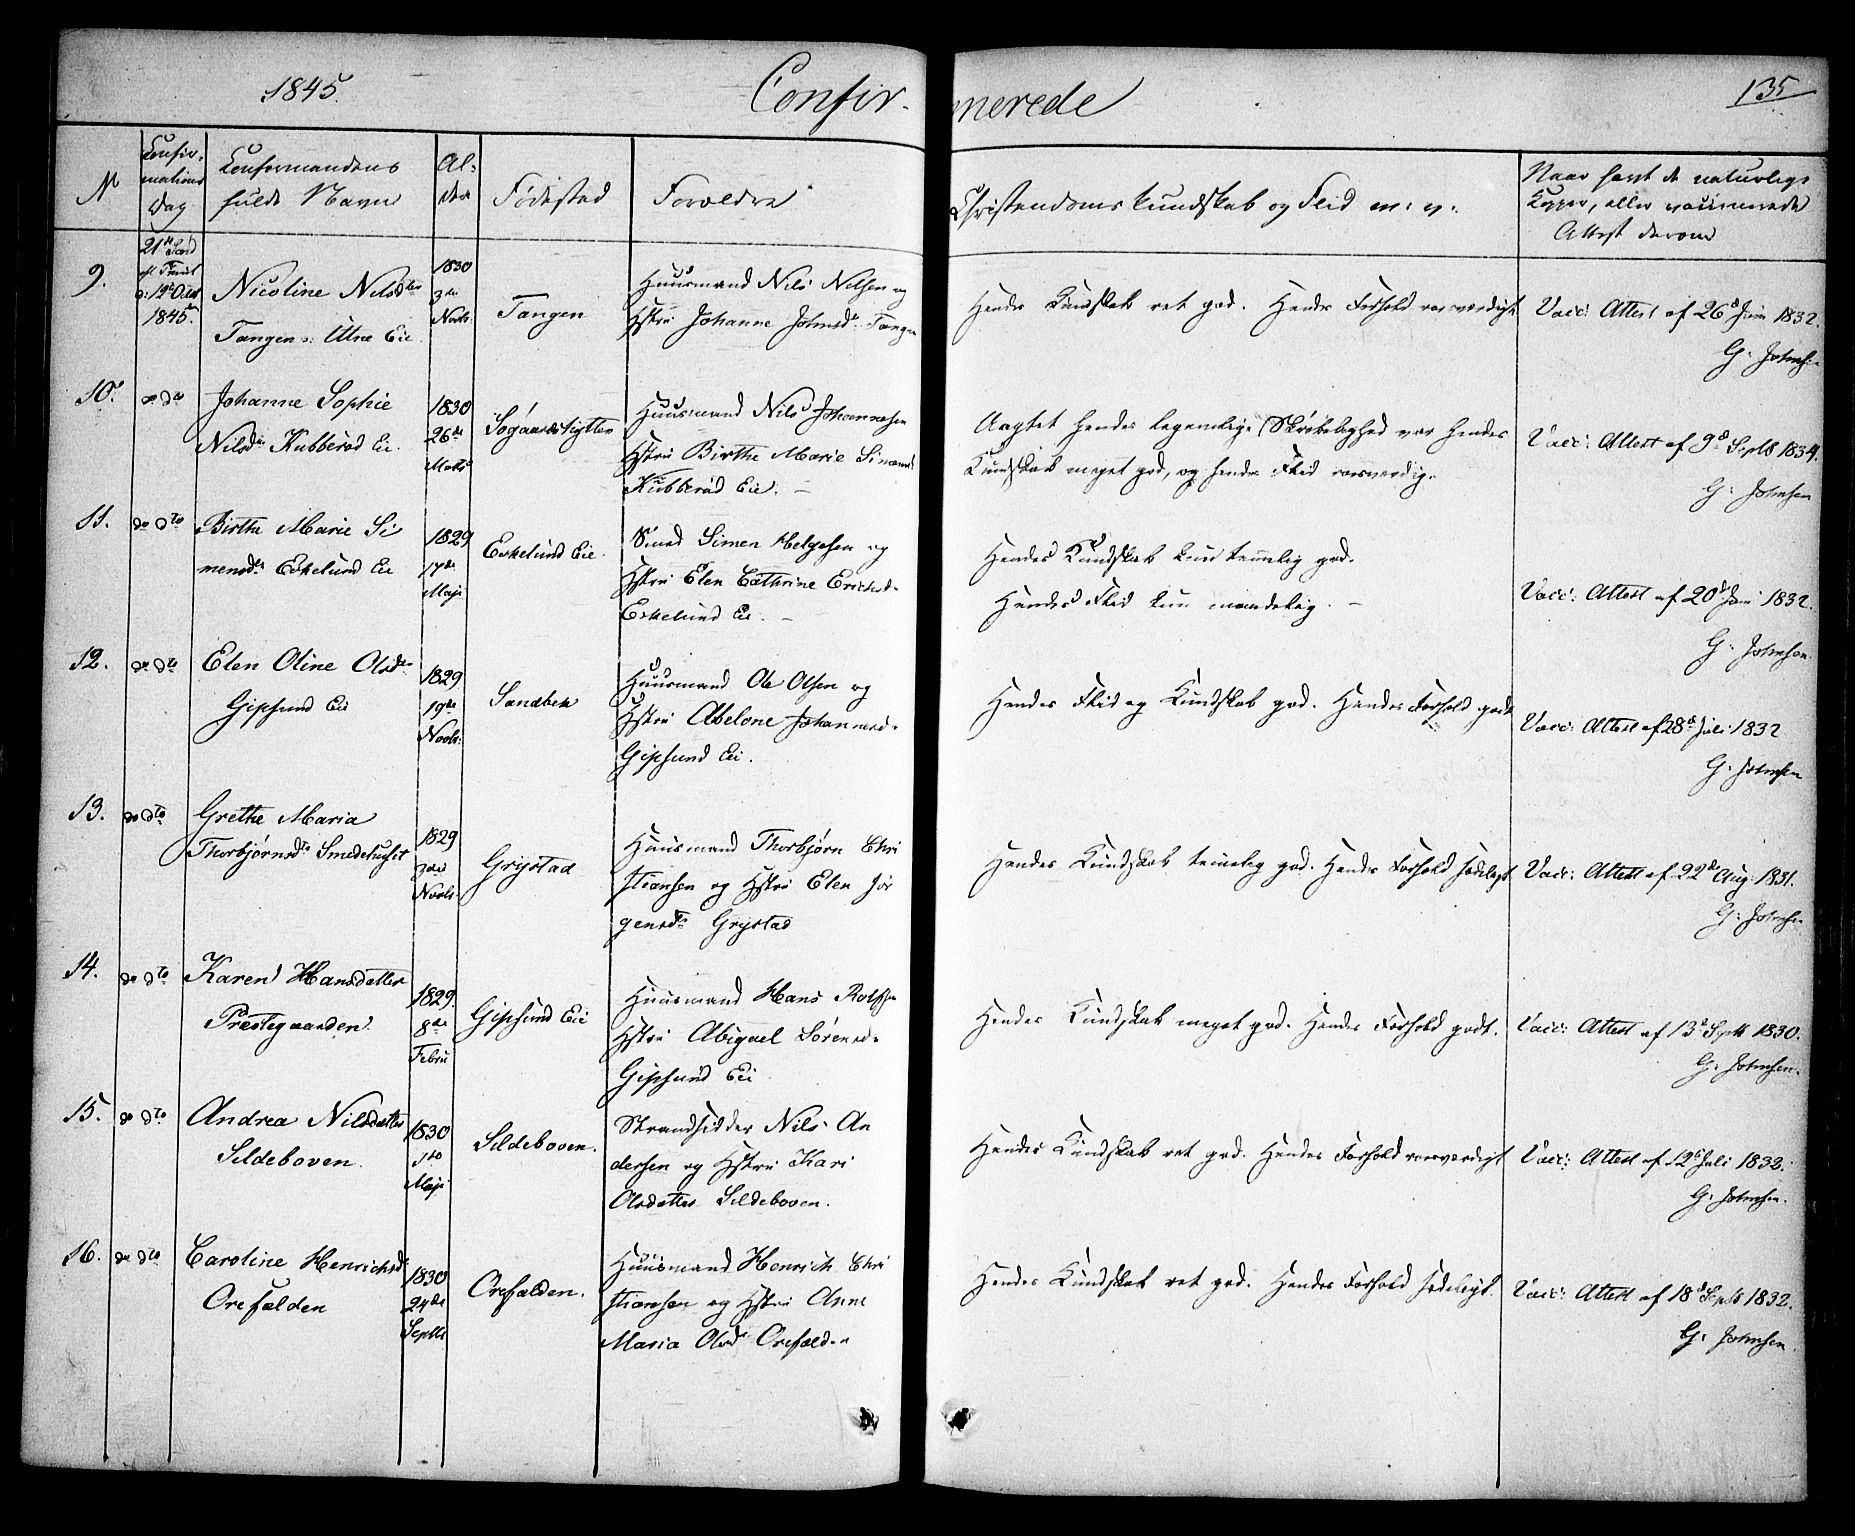 1845.
Confir-
merede
135
N
Confir-
mations
Dag
Confirmandens
fulde Navn
Al-
der
Fødested
Forældre
Christendomskundskab og Flid m: v:
Naar havt de naturlige
Kopper, eller vaccinerede
Attest derom
9.
21de Sønd
ef. Trinit
d: 12te Octbr
1845.
Nicoline Nilsdtr
Tangen Eie
1830
3die
Novbr.
Tangen
Huusmand Nils Nilsen og
Hstru Johanne Johnsd. Tangen
Hendes Kundskab ret god. Hendes Forhold roesværdigt
Vacc: Attest af 26d Juni 1832.
G: Johnsen
10.
do dto
Johanne Sophie
Nilsdr Kubberød Eie.
1830
26de
Marts
Huusmand Nils Johannesen
Hstru Birthe Marie Simensd
Kubberød Eie. —
Uagtet Hendes legemlige Skrøbelighed var Hendes
Kundskab meget god, og hendes Flid roesværdig.
Vacc: Attest af 9d Septb 1834.
G: Johnsen
11.
do dto
Birthe Marie Si
mensdr Eskelund Eie
1829
17de
Maji
Eskelund Eie.
Smed Simen Helgesen og
Hstru Elen Cathrine Erichsd.
Eskelund Eie. —
Hendes Kundskab kun temmelig god.
Hendes Flid kun maadelig. —
Vacc: Attest af 20d Juni 1832.
G: Johnsen.
12.
do dto
Elen Oline Olsdtr
Gipsund Eie
1829
19de
Novbr:
Sandbek
Huusmand Ole Olsen og
Hstru Abelone Johannesd.
Gipsund Eie.
Hendes Flid og Kundskab god. Hendes Forhold godt
Vacc: Attest af 28d Juli 1832
G: Johnsen
13.
do dto
Grethe Maria
Thorbjørnsdtr Smedehuset
1829
3die
Novbr.
Grystad
Huusmand Thorbjørn Chri
stiansen og Hstru Elen Jør
gensdr Grystad
Hendes Kundskab temmelig god. Hendes Forhold sædeligt
Vacc: Attest af 22de Aug: 1831.
G: Johnsen
14.
do dto
Karen Hansdatter
Prestegaarden.
1829.
8de
Febru
Gipsund Eie
Huusmand Hans Rolfsen
Hstru Abigael Sørensd.
Gipsund Eie
Hendes Kundskab meget god. Hendes Forhold godt.
Vacc: Attest af 13d Septb 1830.
G: Johnsen.
15.
do dto
Andrea Nilsdatter
Sildeboven.
1830
1ste
Maji
Sildeboven.
Strandsidder Nils An
dersen og Hstru Kari
Olsdatter Sildeboven.
Hendes Kundskab ret god. Hendes Forhold roesværdigt
Vacc: Attest af 12t Juli 1832.
G: Johnsen.
16.
do dto
Caroline Henrichsd
Orefælden
1830
24de
Septbr
Orefælden.
Huusmand Henrich Chri
stiansen og Hstru Anne
Maria Olsdr Orefælden
Hendes Kundskab ret god. Hendes Forhold sædeligt.
Vacc: Attest af 18d Septb 1832.
G: Johnsen.